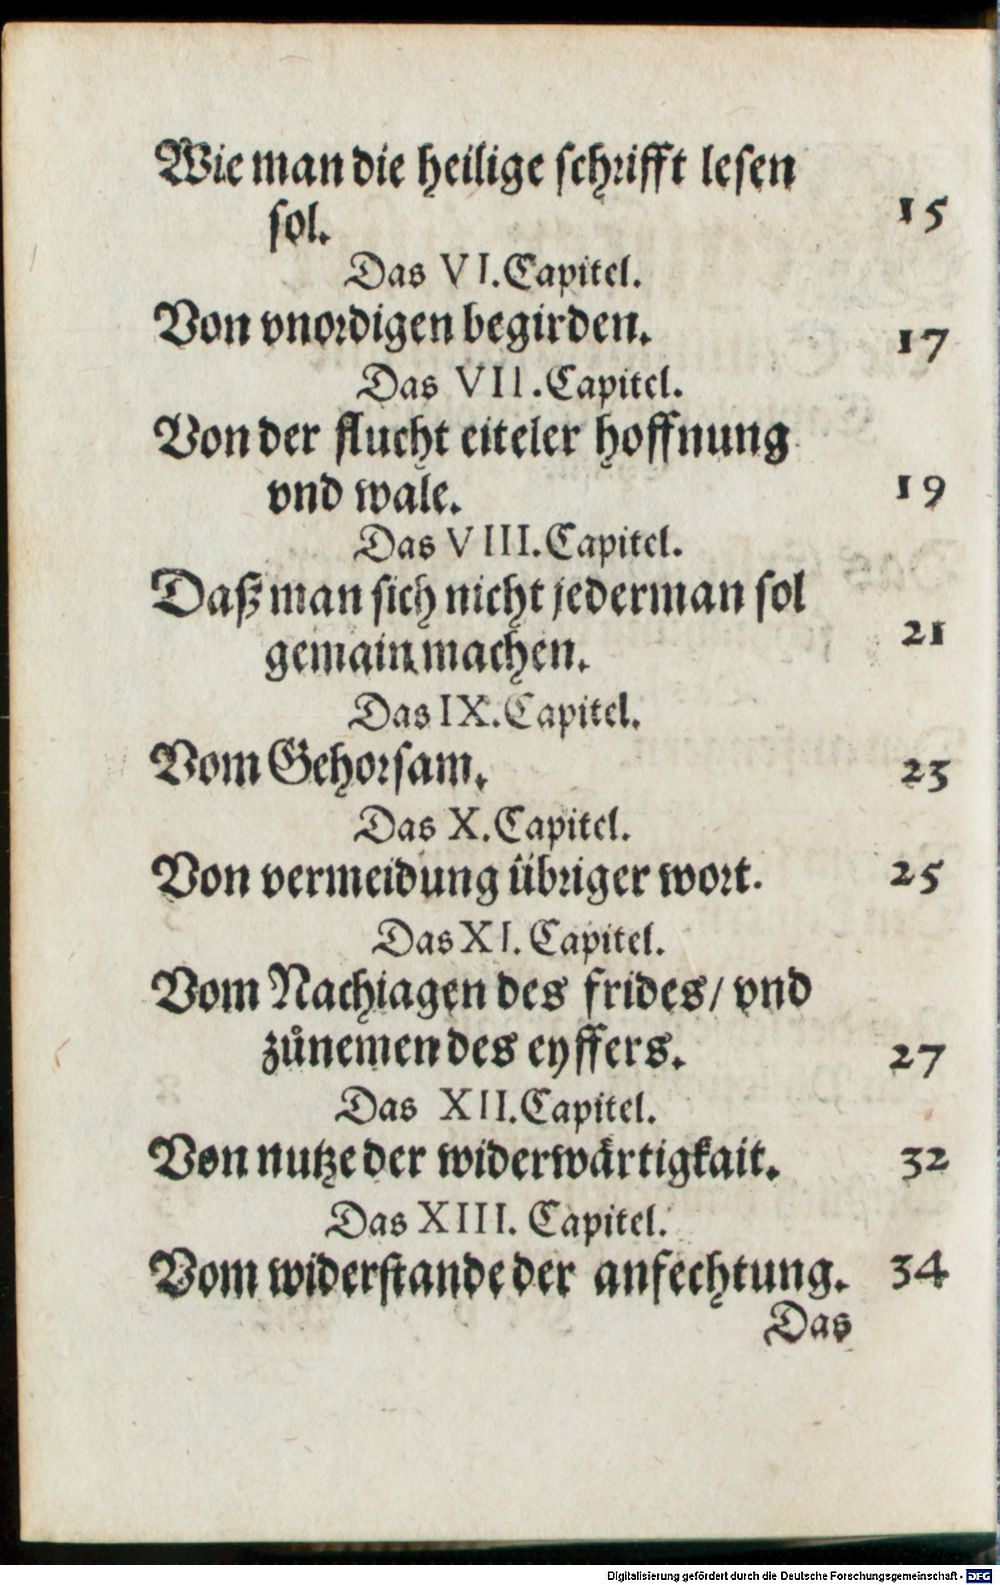 Wie man die heilige schrifft lesen
sol. 15
Das VI. Capitel.
Von vnordigen begirden. 17
Das VII. Capitel.
Von der flucht eiteler hoffnung
vnd wale. 19
Das VIII. Capitel.
Daß man sich nicht jederman sol
gemain machen. 21
Das IX. Capitel.
Vom Gehorsam. 23
Das X. Capitel.
Von vermeidung übriger wort. 25
Das XI. Capitel.
Vom Nachiagen des frides/ vnd
zůnemen des eyffers. 27
Das XII. Capitel.
Von nutze der widerwärtigkait. 32
Das XIII. Capitel.
Vom widerstande der anfechtung. 34
Das
Digitalisierung gefördert durch die Deutsche Forschungsgemeinschaft - DFG